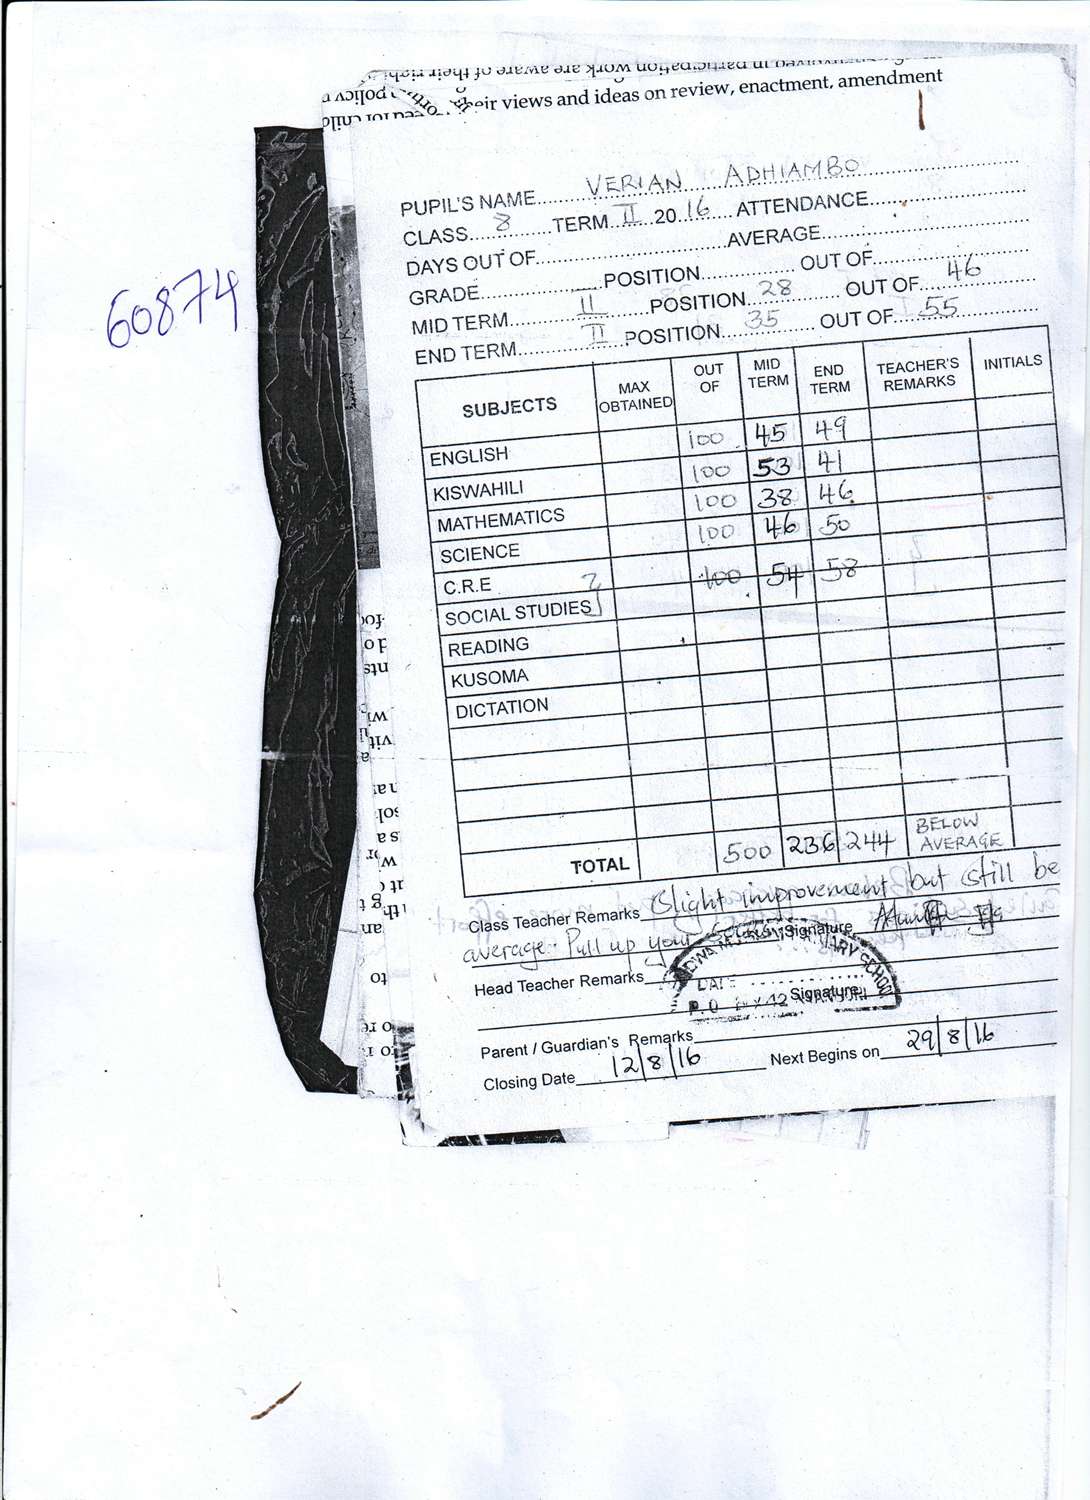 eir views and ideas on review, enactment, amendment
60874
PUPIL'S NAME VERIAN ADHIAMBO
CLASS 8 TERM II 2016 ATTENDANCE
DAYS OUT OF AVERAGE
GRADE POSITION OUT OF
MID TERM II POSITION 28 OUT OF 46
END TERM II POSITION 35 OUT OF 55
SUBJECTS MAX OBTAINED OUT OF MID TERM END TERM TEACHER'S REMARKS INITIALS
ENGLISH 100 45 49
KISWAHILI 100 53 41
MATHEMATICS 100 38 46
SCIENCE 100 46 50
C.R.E 100 54 58
SOCIAL STUDIES
READING
KUSOMA
DICTATION
TOTAL 500 236 244 BELOW AVERAGE
Class Teacher Remarks Slight improvement but still be
average. Pull up your Signature
Head Teacher Remarks
DATE
P.O Signature
Parent / Guardian's Remarks
Closing Date 12/8/16 Next Begins on 29/8/16